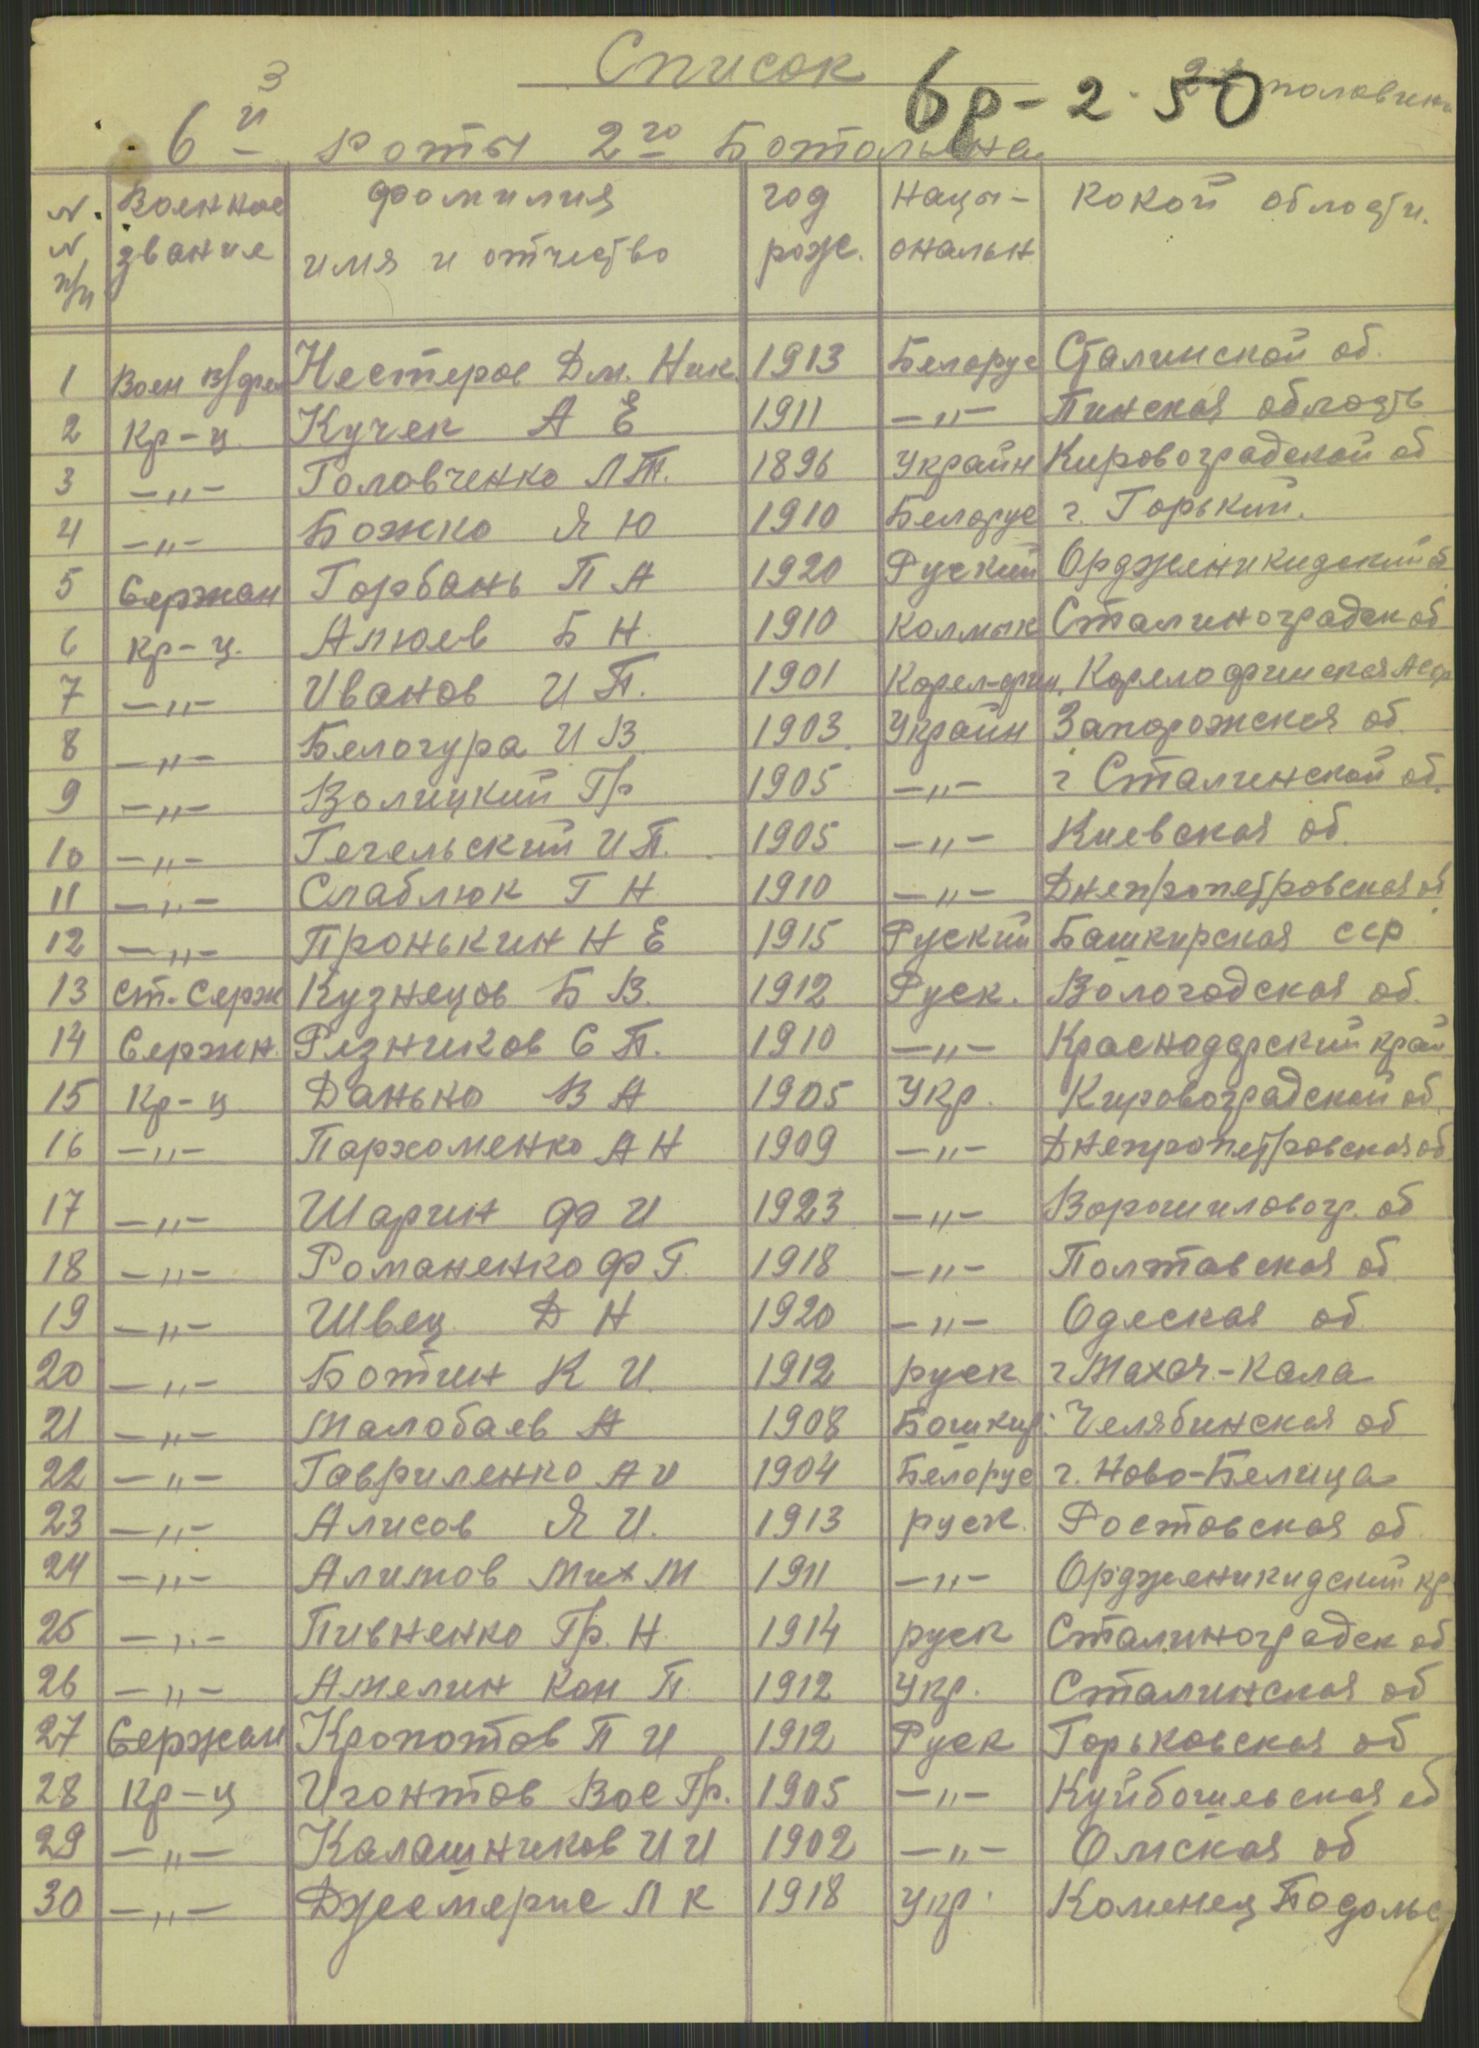 Список
3
бр-2.50
половин
6й роты 2го Ботальена
N. N п/п Военное звание фомилия имя и отчество год рож. нацы-ональн кокой облости.
1 Воен в/фел Нестеров Дм. Ник. 1913 Белорус Сталинской об.
2 Кр-ц. Кучек А Е 1911 -"- Пинская область
3 -"- Головченко Л Т. 1896 Украин Кировоградской об
4 -"- Божко Я Ю 1910 Белорус г. Горький.
5 Сержан Горбань П А 1920 Руский Орджиникидский
6 кр-ц. Апюев Б Н. 1910 колмык Сталиноградск об
7 -"- Иванов И П. 1901 Карел-фин. Карелофинская
8 -"- Белогура И В. 1903. Украин Запорожская об.
9 -"- Волицкий Гр 1905 -"- г Сталинской об.
10 -"- Гечельский И П. 1905 -"- Киевская об.
11 -"- Слаблюк Г Н 1910 -"- Днепропетровская об
12 -"- Пронькин Н Е 1915 Руский Башкирская сср
13 ст. Серж Кузнецов Б В. 1912 Руск. Вологодская об.
14 Сержн. Резников С П. 1910 -"- Краснодарский край
15 Кр-ц Данько В А 1905 Укр. Кировоградской об.
16 -"- Пархоменко А Н 1909 -"- Днепропетровская об
17 -"- Шарин Ф И 1923 -"- Ворошиловогр. об
18 -"- Романенко Ф Г. 1918 -"- Полтавская об
19 -"- Швец Д Н 1920 -"- Одеская об
20 -"- Ботин К И. 1912 руск г Махач-кала
21 -"- Малобаев А 1908 Бошкир. Челябинская об
22 -"- Гавриленко А И 1904 Белорус г. Ново-Белица
23 -"- Алисов Я И. 1913 руск. Ростовская об
24 -"- Алимов Мих М 1911 -"- Орджиникидский кр
25 -"- Пивненко Гр. Н 1914 руск Сталиноградск об
26 -"- Амелин Кон П. 1912 Укр. Сталинская об
27 Сержан Кропотов П И 1912 Руск Горьковская об
28 Кр-ц Игонтов Вас Гр. 1905 -"- Куйбошевская об
29 -"- Калашников И И 1902 -"- Омская об
30 -"- Джемерис Л К 1918 Укр. Каменец Подольс